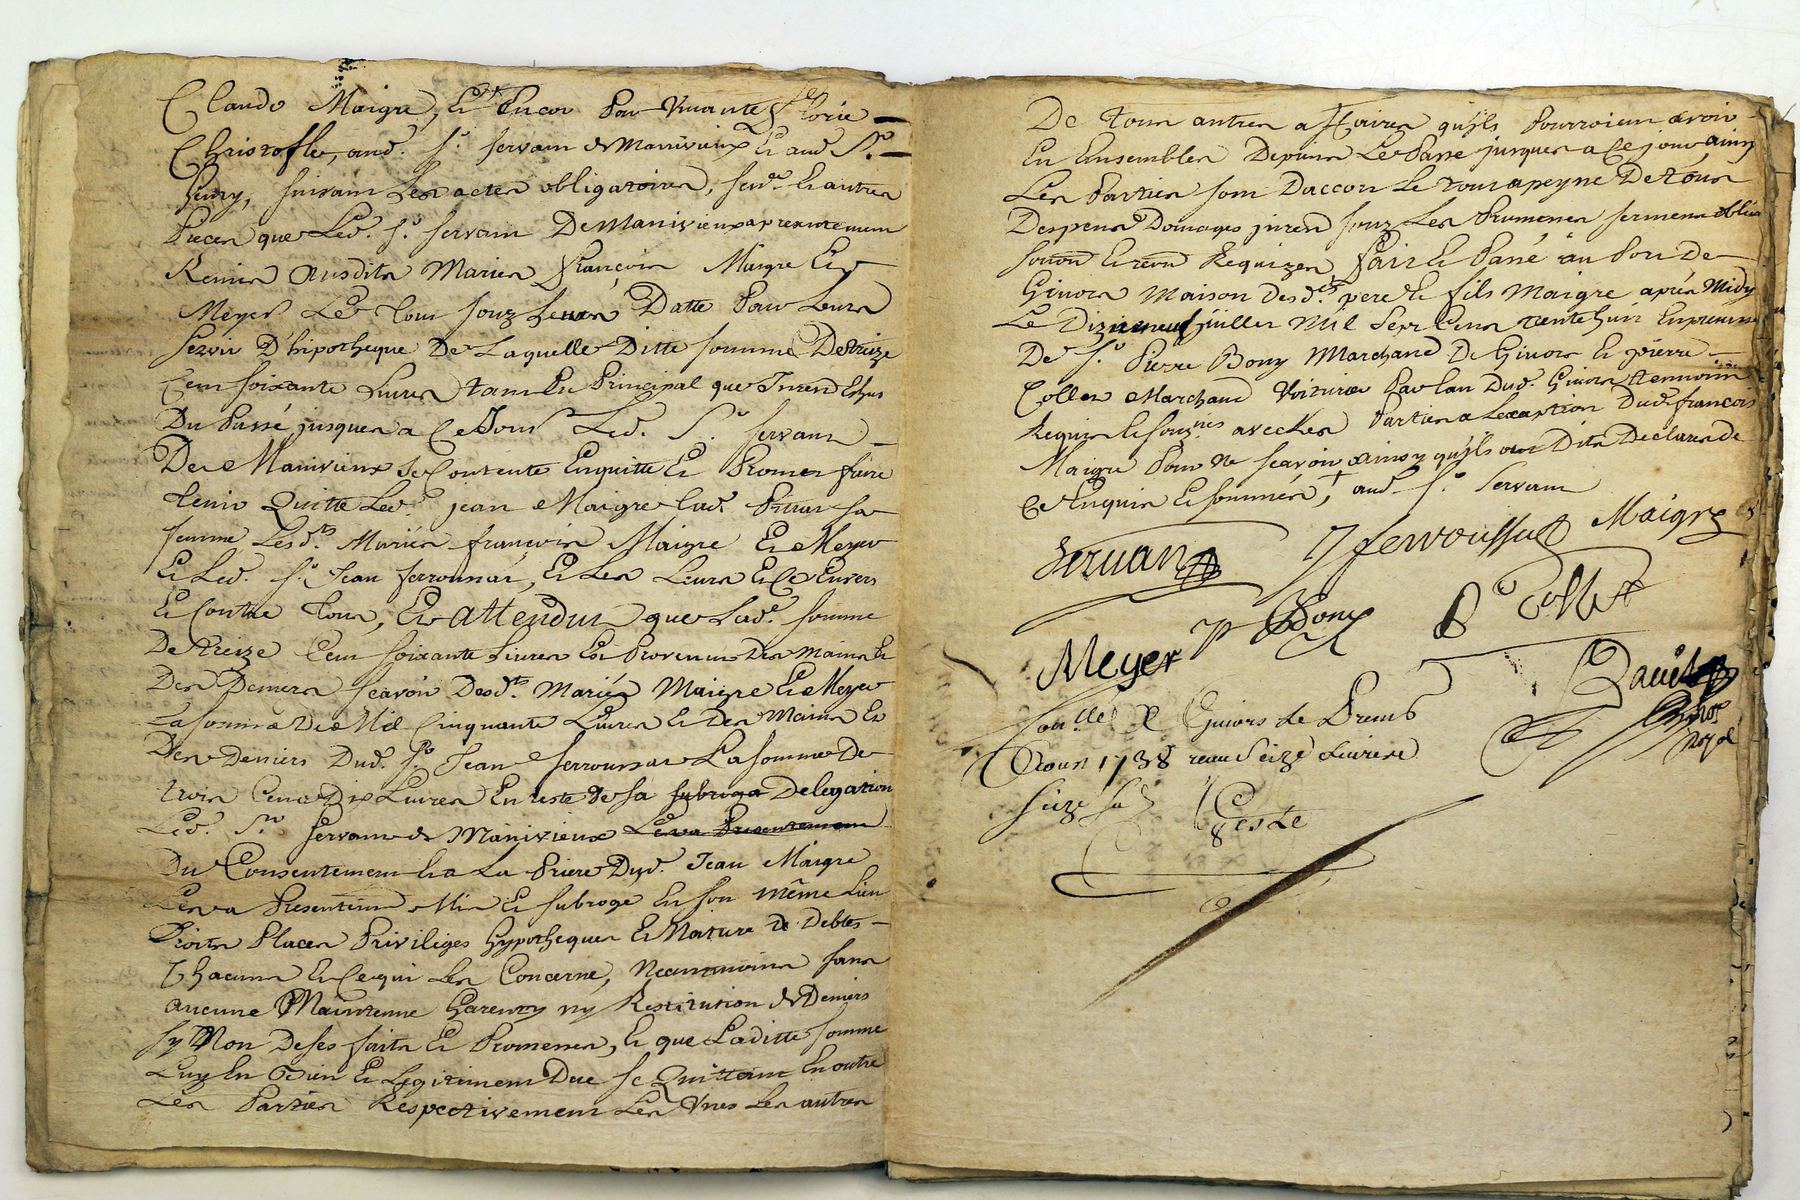 Claude Maigre, Et Encor Pour Vivante fflorie
Christofle, aud. Sr. servant de Manivieux Et aud Sr.
henry, suivant Les actes obligatoires, sende. Et autres
Pieces que Led. Sr. servant De Manivieux a presentement
Remis Ausdits Mariés françois Maigre Et
Meyer Le Tout souz Leurs Datte Pour Leurs
Servir D'hipotheque De Laquelle Ditte somme De treize
Cent soixante Livres tant En Principal que
Du Passé jusques a Ce Jour Led. Sr. servant
De Manivieux se Contente Enquitte Et Promet faire
tenir Quitte Led. jean Maigre Lad. sa
femme, Lesdts. Mariés françois Maigre Et Meyer
Et Led. Sr. Jean ferroussat, Et Les Leurs Et Ce Envers
Et Contre Tous, Et attendut que Lad.e somme
De treize Cent soixante Livres Est Provenue Des Mains Et
Des Deniers scavoir Desdts. Mariés Maigre Et Meyer
La somme De Mil Cinquante Livres Et Des Mains Et
Des Deniers Dud. Sr. Jean ferroussat La somme De
trois Cent Dix Livres En reste de sa subroga Delegation
Led. Sr. Servant de Manivieux Les a Presentement
Du Consentement Et a La Priere Dud. Jean Maigre
Les a Presentemt Mis Et subroge En son même Lieu
Droits Places Priviliges hypotheques Et Nature de Debtes
Chacuns En Ce qui Les Concerne, Neanmoins sans
aucune Maintenue Garenty ny Restitution de Deniers
sy Non De ses faits Et Promesses, Et que Laditte somme
Luy En Bien Et Legitimemt Due se Quittant En outre
Les Parties Respectivement Les Unes Les autres
De Tous autres affaires qu'ils Pourroient avoir
Eu Ensembles Depuis Le Passé jusques a Ce jour ainsy
Les Parties sont D'accort Le tout a peyne De tous
Despens Domages souz Les Promesses serment
Requizes fait Et Passé au Port De
Givors Maison Desdts. pere Et fils Maigre après Midy
Le Dizneuf juillet Mil Sept Cens trente huit En presence
De Sr. Pierre Bony Marchand De Givors Et pierre
Collet Marchand Voiturier Par Eau Dud. Givors temoins
Requis Et souznés avec Les Parties a Lexaption Dud. françois
Maigre Pour Ne scavoir ainsy qu'ils ont Dits Declares De
Ce Enquis Et sommés, † aud. Sr. Servant
Servant
J ferroussat
Maigre
Meyer
P Bony
P Collet
Conllé a Givors Le
1738 receu Seize Livres
seize s
Royal